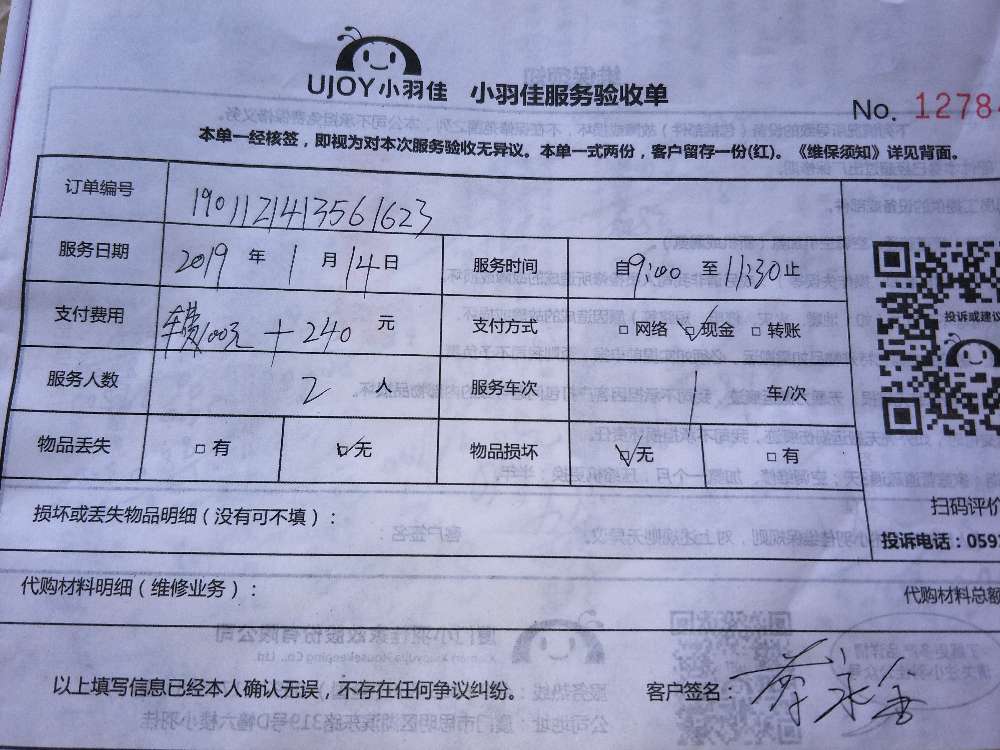 UJOY小羽佳 小羽佳服务验收单
No. 1278
本单一经核签，即视为对本次服务验收无异议。本单一式两份，客户留存一份(红)。《维保须知》详见背面。
订单编号 1901121413561623
服务日期 2019 年 1 月 14 日 服务时间 自 9:00 至 11:30 止
支付费用 车费100元 + 240 元 支付方式 □ 网络 ☑ 现金 □ 转账
投诉或建议
服务人数 2 人 服务车次 1 车/次
物品丢失 □ 有 ☑ 无 物品损坏 ☑ 无 □ 有
扫码评价
损坏或丢失物品明细（没有可不填）：
投诉电话：059
代购材料明细（维修业务）：
代购材料总额
以上填写信息已经本人确认无误，不存在任何争议纠纷。 客户签名：